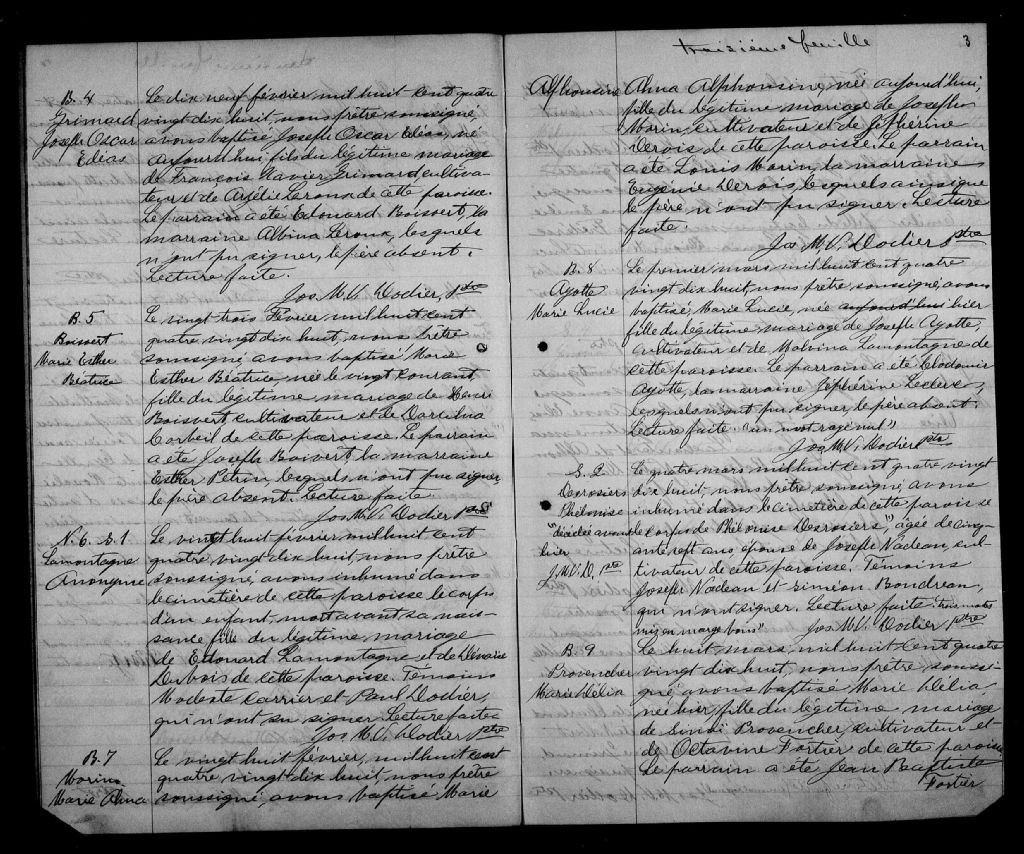 B. 4
Grimard
Joseph Oscar
Edéas
Le dix neuf février mil huit cent quatre
vingt dix huit, nous prêtre soussigné,
avons baptisé Joseph Oscar Edéas, né
aujourd'hui fils du légitime mariage
de François Xavier Grimard cultiva-
teur et de Arzélie Leroux de cette paroisse.
Le parrain a été Edouard Boisvert, la
marraine Albina Leroux, lesquels
n'ont pu signer, le père absent.
Lecture faite.
Jos. M. V. Dodier, Ptre
B. 5
Boisvert
Marie Esther
Béatrice
Le vingt trois Février mil huit cent
quatre vingt dix huit, nous prêtre
soussigné avons baptisé Marie
Esther Béatrice, née le vingt courant,
fille du légitime mariage de Henri
Boisvert, cultivateur et de
Corbeil de cette paroisse. Le parrain
a été Joseph Boivert la marraine
Esther Petrin, lesquels n'ont pu signer
le père absent. Lecture faite
Jos. M. V. Dodier Ptre
N. 6. S. 1
Lamontagne
Anonyme
Le vingt huit février mil huit cent
quatre vingt dix huit, nous prêtre
soussigné, avons inhumé dans
le cimetière de cette paroisse le corps
d'un enfant, mort avant sa nais-
sance fille du légitime mariage
de Edouard Lamontagne et de
Dubois de cette paroisse. Témoins
Modeste Carrier et Paul Dodier,
qui n'ont su signer Lecture faite
Jos M. V. Dodier Ptre
B. 7
Morin
Marie Alma
Le vingt huit février, mil huit cent
quatre vingt dix huit, nous prêtre
soussigné, avons baptisé Marie
troisième feuille
3
Alphonsine
Alma Alphonsine, née aujourd'hui,
fille du légitime mariage de Joseph
Morin, cultivateur et de Zépherine
Derois de cette paroisse. Le parrain
a été Louis Morin, la marraine
Eugénie Derois, lesquels ainsi que
le père n'ont pu signer. Lecture
faite.
Jos M. V. Dodier Ptre
B. 8
Ayotte
Marie Lucie
Le premier mars mil huit cent quatre
vingt dix huit, nous prêtre soussigné, avons
baptisé, Marie Lucie, née aujourd'hui hier
fille du légitime mariage de Joseph Ayotte,
cultivateur et de Malvina Lamontagne de
cette paroisse. Le parrain a été Clodomir
Ayotte, la marraine Zépherine Leclerc,
lesquels n'ont pu signer, le père absent.
Lecture faite "un mot rayé nul"
Jos M. V. Dodier Ptre
S. 2
Desrosiers
Philomise
"décédée avant
hier
J. M. V. D. Ptre
Le quatre mars mil huit cent quatre vingt
dix huit, nous prêtre, soussigné, avons
inhumé dans le cimetière de cette paroisse
le corps de Philomise Desrosiers", agée de cinq-
ante sept ans, épouse de Joseph Nadeau, cul-
tivateur de cette paroisse. Témoins
Joseph Nadeau et Siméon Boudreau,
qui n'ont signer. Lecture faite. trois mots
mis en marge bons"
Jos. M. V. Dodier Ptre
B. 9
Provencher
Marie Délia
Le huit mars, mil huit cent quatre
vingt dix huit, nous prêtre soussi-
gné, avons baptisé Marie Délia,
née hier, fille du légitime mariage
de Provencher, cultivateur et
de Octavine Fortier de cette paroisse
Le parrain a été Jean Baptiste
Fortier